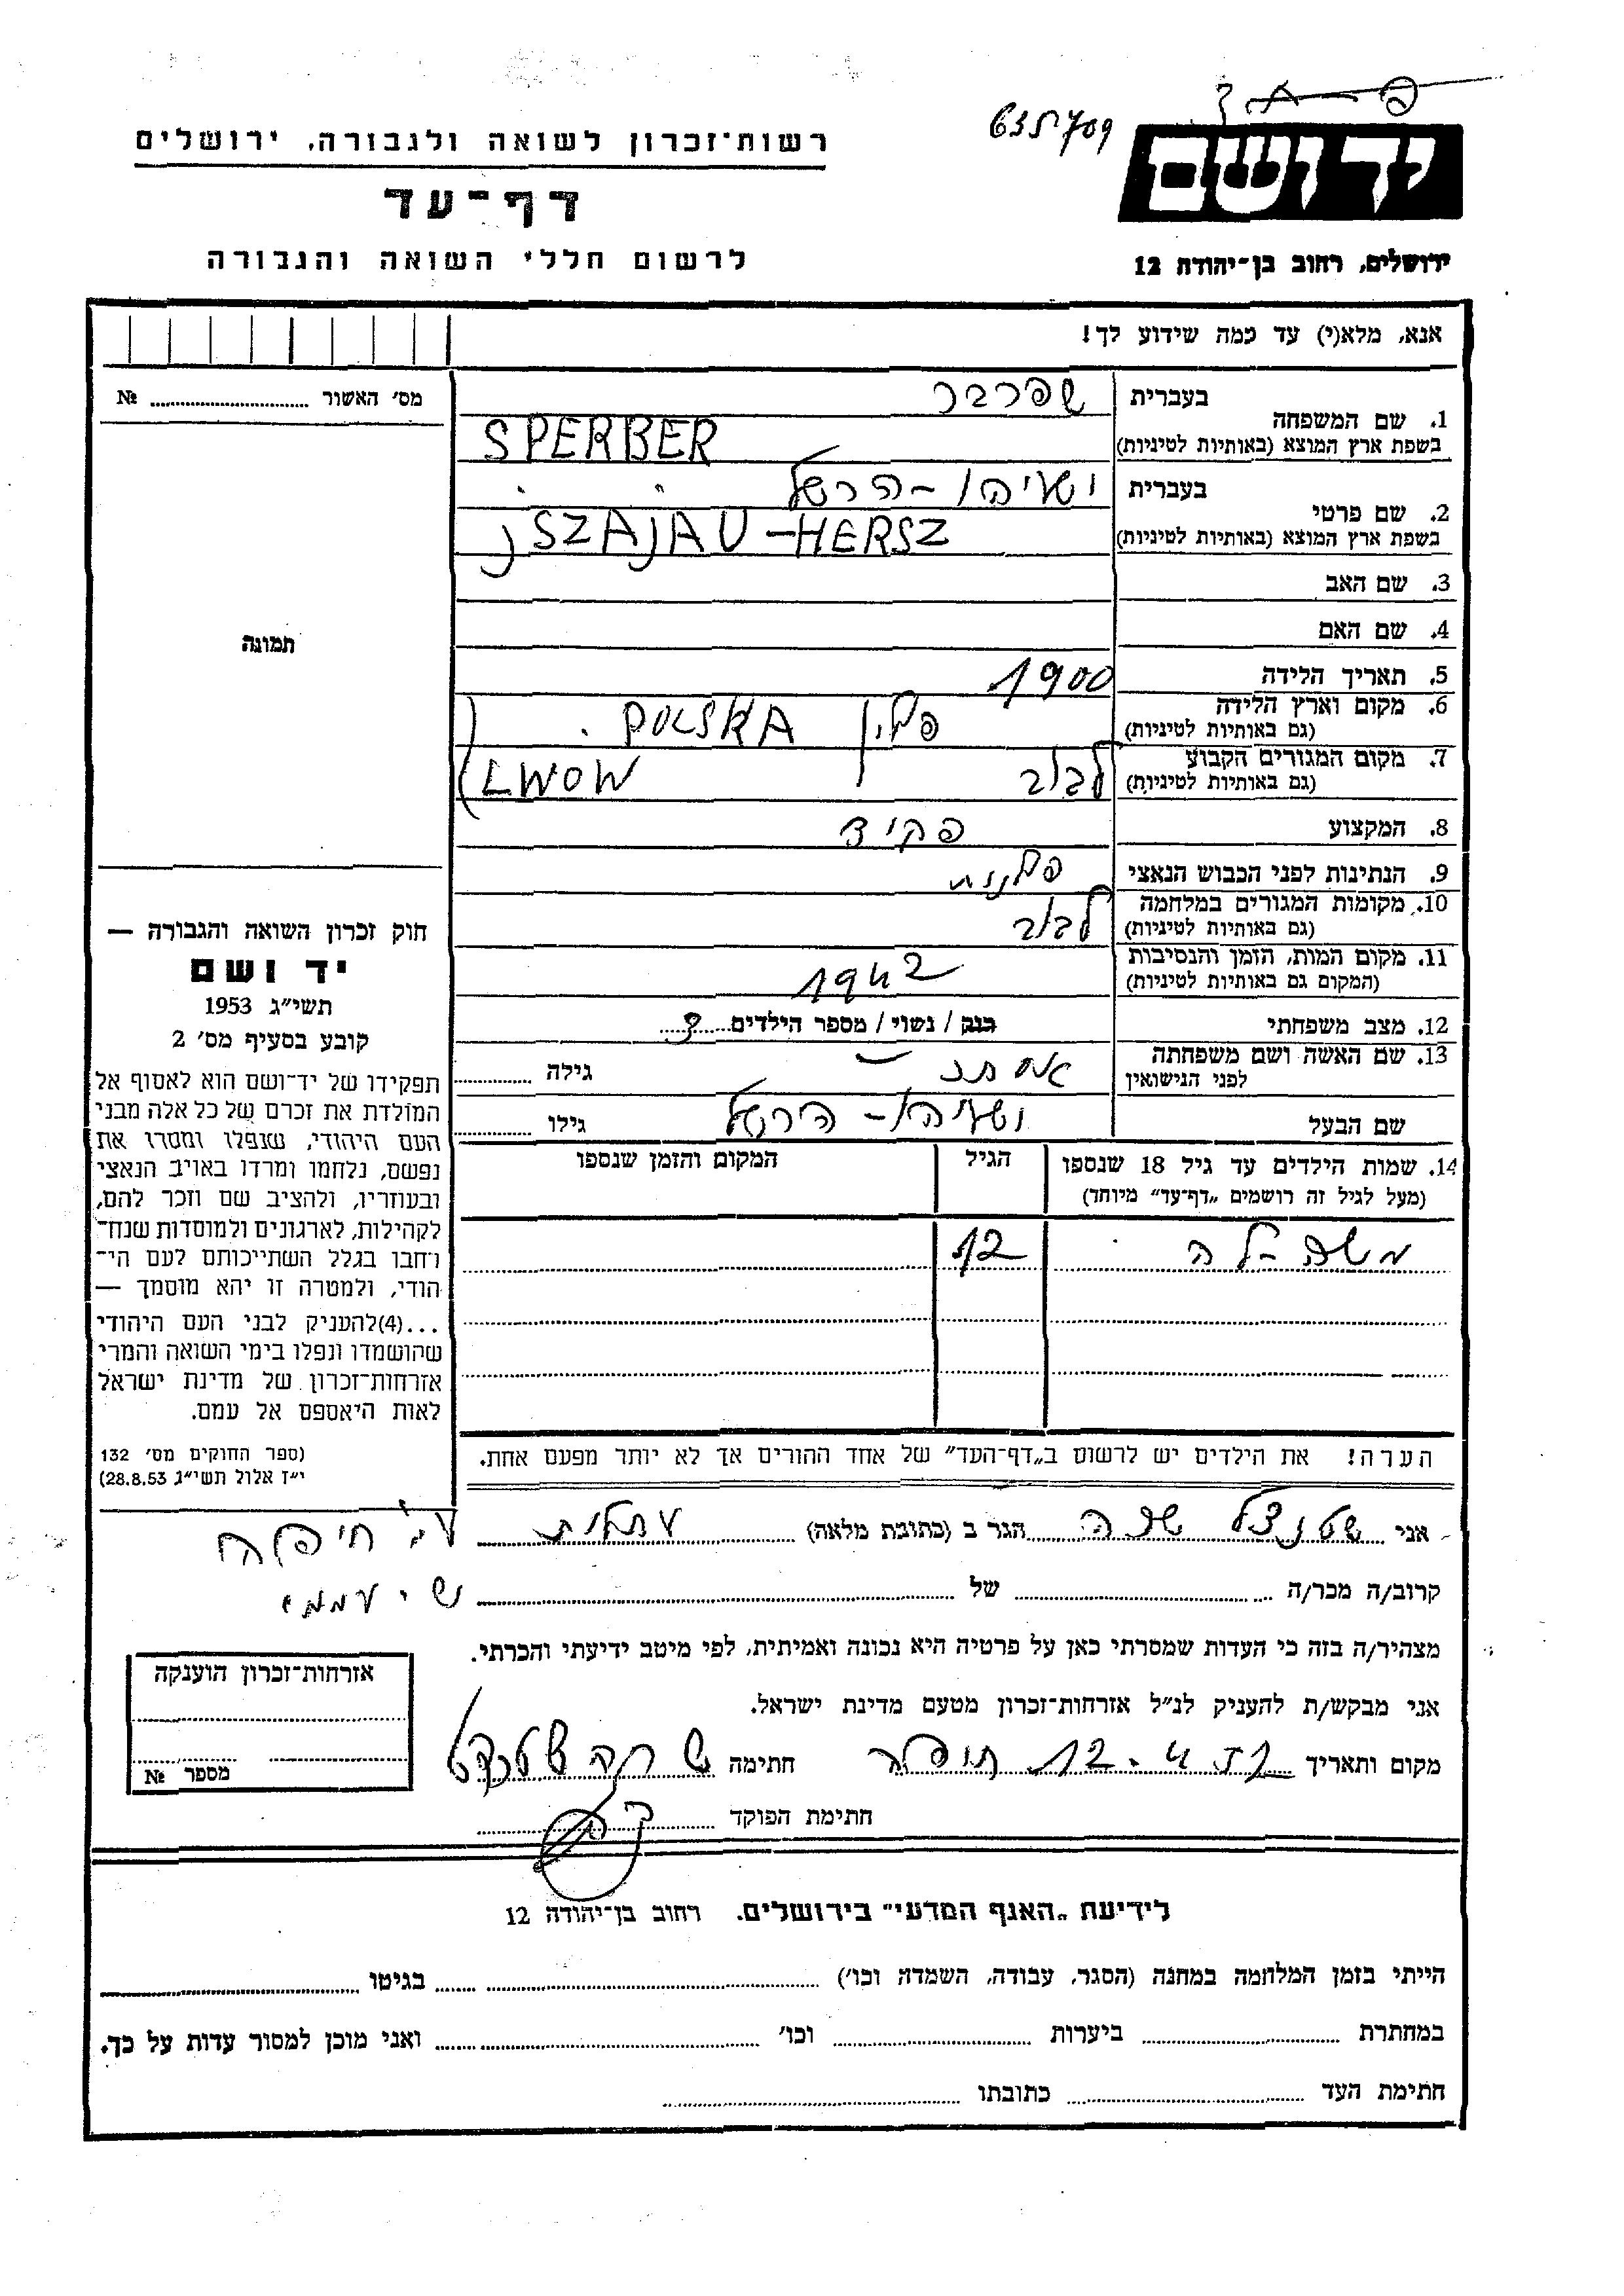 635709
יד ושם
ירושלים, רחוב בן-יהודה 12
רשות-זכרון לשואה ולגבורה, ירושלים
דף-עד
לרשום חללי השואה והגבורה
אנא, מלא(י) עד כמה שידוע לך!
מס' האשור № ........
1. שם המשפחה
בעברית שפרבר
בשפת ארץ המוצא (באותיות לטיניות) SPERBER
2. שם פרטי
בעברית ושעיהו-הרשל
בשפת ארץ המוצא (באותיות לטיניות) JSZAJAU-HERSZ
3. שם האב
4. שם האם
תמונה
5. תאריך הלידה 1900
6. מקום וארץ הלידה
(גם באותיות לטיניות) פולין POLSKA
7. מקום המגורים הקבוע
(גם באותיות לטיניות) לבוב LWOW
8. המקצוע פקיד
9. הנתינות לפני הכבוש הנאצי פולנית
10. מקומות המגורים במלחמה
(גם באותיות לטיניות) לבוב
11. מקום המות, הזמן והנסיבות
(המקום גם באותיות לטיניות) 1942
12. מצב משפחתי רווק / נשוי / מספר הילדים
13. שם האשה ושם משפחתה
לפני הנישואין אסתר גילה ........
שם הבעל ושעיהו-הרשל גילו ........
14. שמות הילדים עד גיל 18 שנספו
(מעל לגיל זה רושמים „דף-עד" מיוחד)
הגיל
המקום והזמן שנספו
12
הערה! את הילדים יש לרשום ב„דף-העד" של אחד ההורים אך לא יותר מפעם אחת.
חוק זכרון השואה והגבורה —
יד ושם
תשי"ג 1953
קובע בסעיף מס' 2
תפקידו של יד-ושם הוא לאסוף אל
המולדת את זכרם של כל אלה מבני
העם היהודי, שנפלו ומסרו את
נפשם, נלחמו ומרדו באויב הנאצי
ובעוזריו, ולהציב שם וזכר להם,
לקהילות, לארגונים ולמוסדות שנח-
רחבו בגלל השתייכותם לעם הי-
הודי, ולמטרה זו יהא מוסמך —
...(4)להעניק לבני העם היהודי
שהושמדו ונפלו בימי השואה והמרי
אזרחות-זכרון של מדינת ישראל
לאות היאספם אל עמם.
(ספר החוקים מס' 132
י"ז אלול תשי"ג 28.8.53)
אני שטנצל שרה הגר ב (כתובת מלאה) עתלית ע"י חיפה
קרוב/ה מכר/ה ........ של ........
מצהיר/ה בזה כי העדות שמסרתי כאן על פרטיה היא נכונה ואמיתית, לפי מיטב ידיעתי והכרתי.
אני מבקש/ת להעניק לנ"ל אזרחות-זכרון מטעם מדינת ישראל.
מקום ותאריך חיפה חתימה שרה שטנצל
חתימת הפוקד
אזרחות-זכרון הוענקה
מספר №
לידיעת „האגף המדעי" בירושלים. רחוב בן-יהודה 12
הייתי בזמן המלחמה במחנה (הסגר, עבודה, השמדה וכו') ........ בגיטו ........
במחתרת ........ ביערות ........ וכו' ........ ואני מוכן למסור עדות על כך.
חתימת העד ........ כתובתו ........